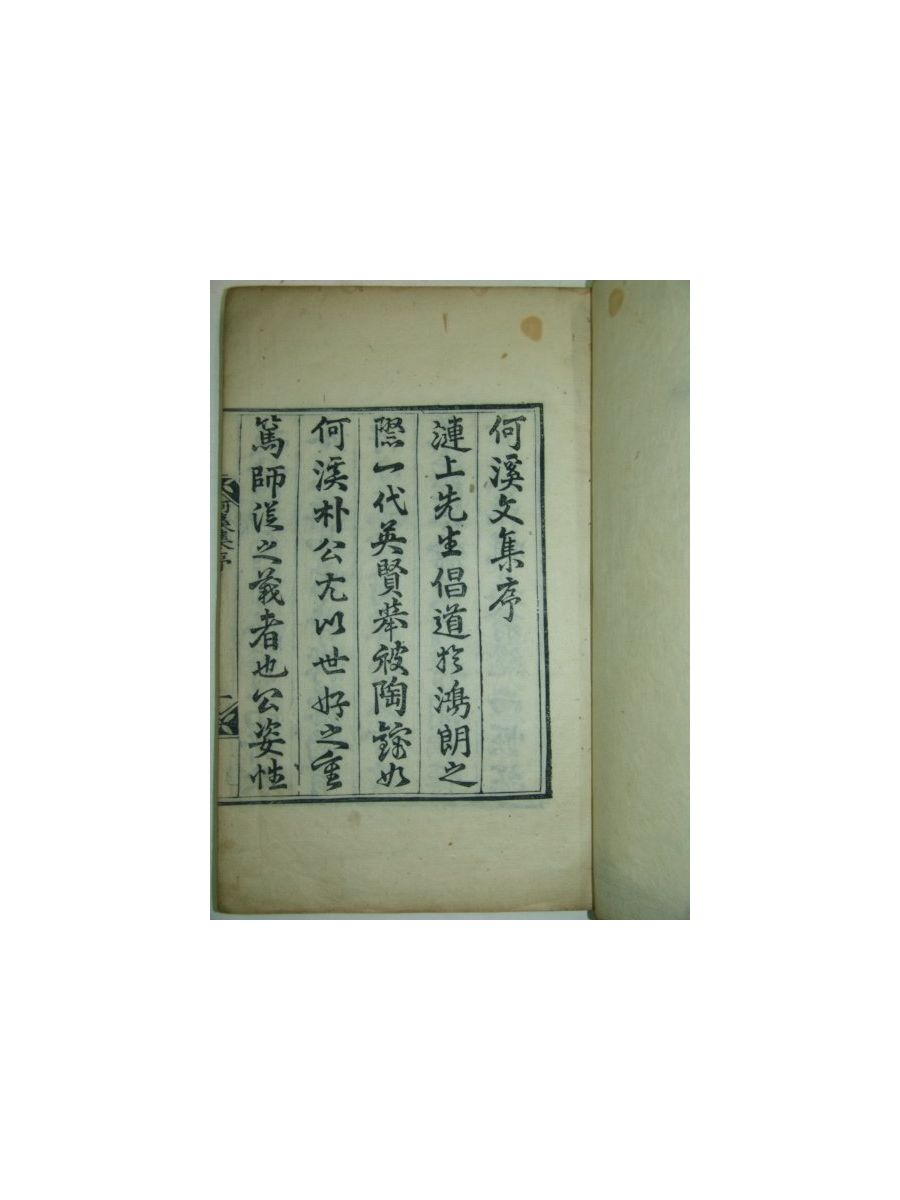 何溪文集序
漣上先生倡道於鴻朗之
際一代英賢举被陶鎔如
何溪朴公尤以世好之重
篤師從之義者也公姿性
何溪集序
一